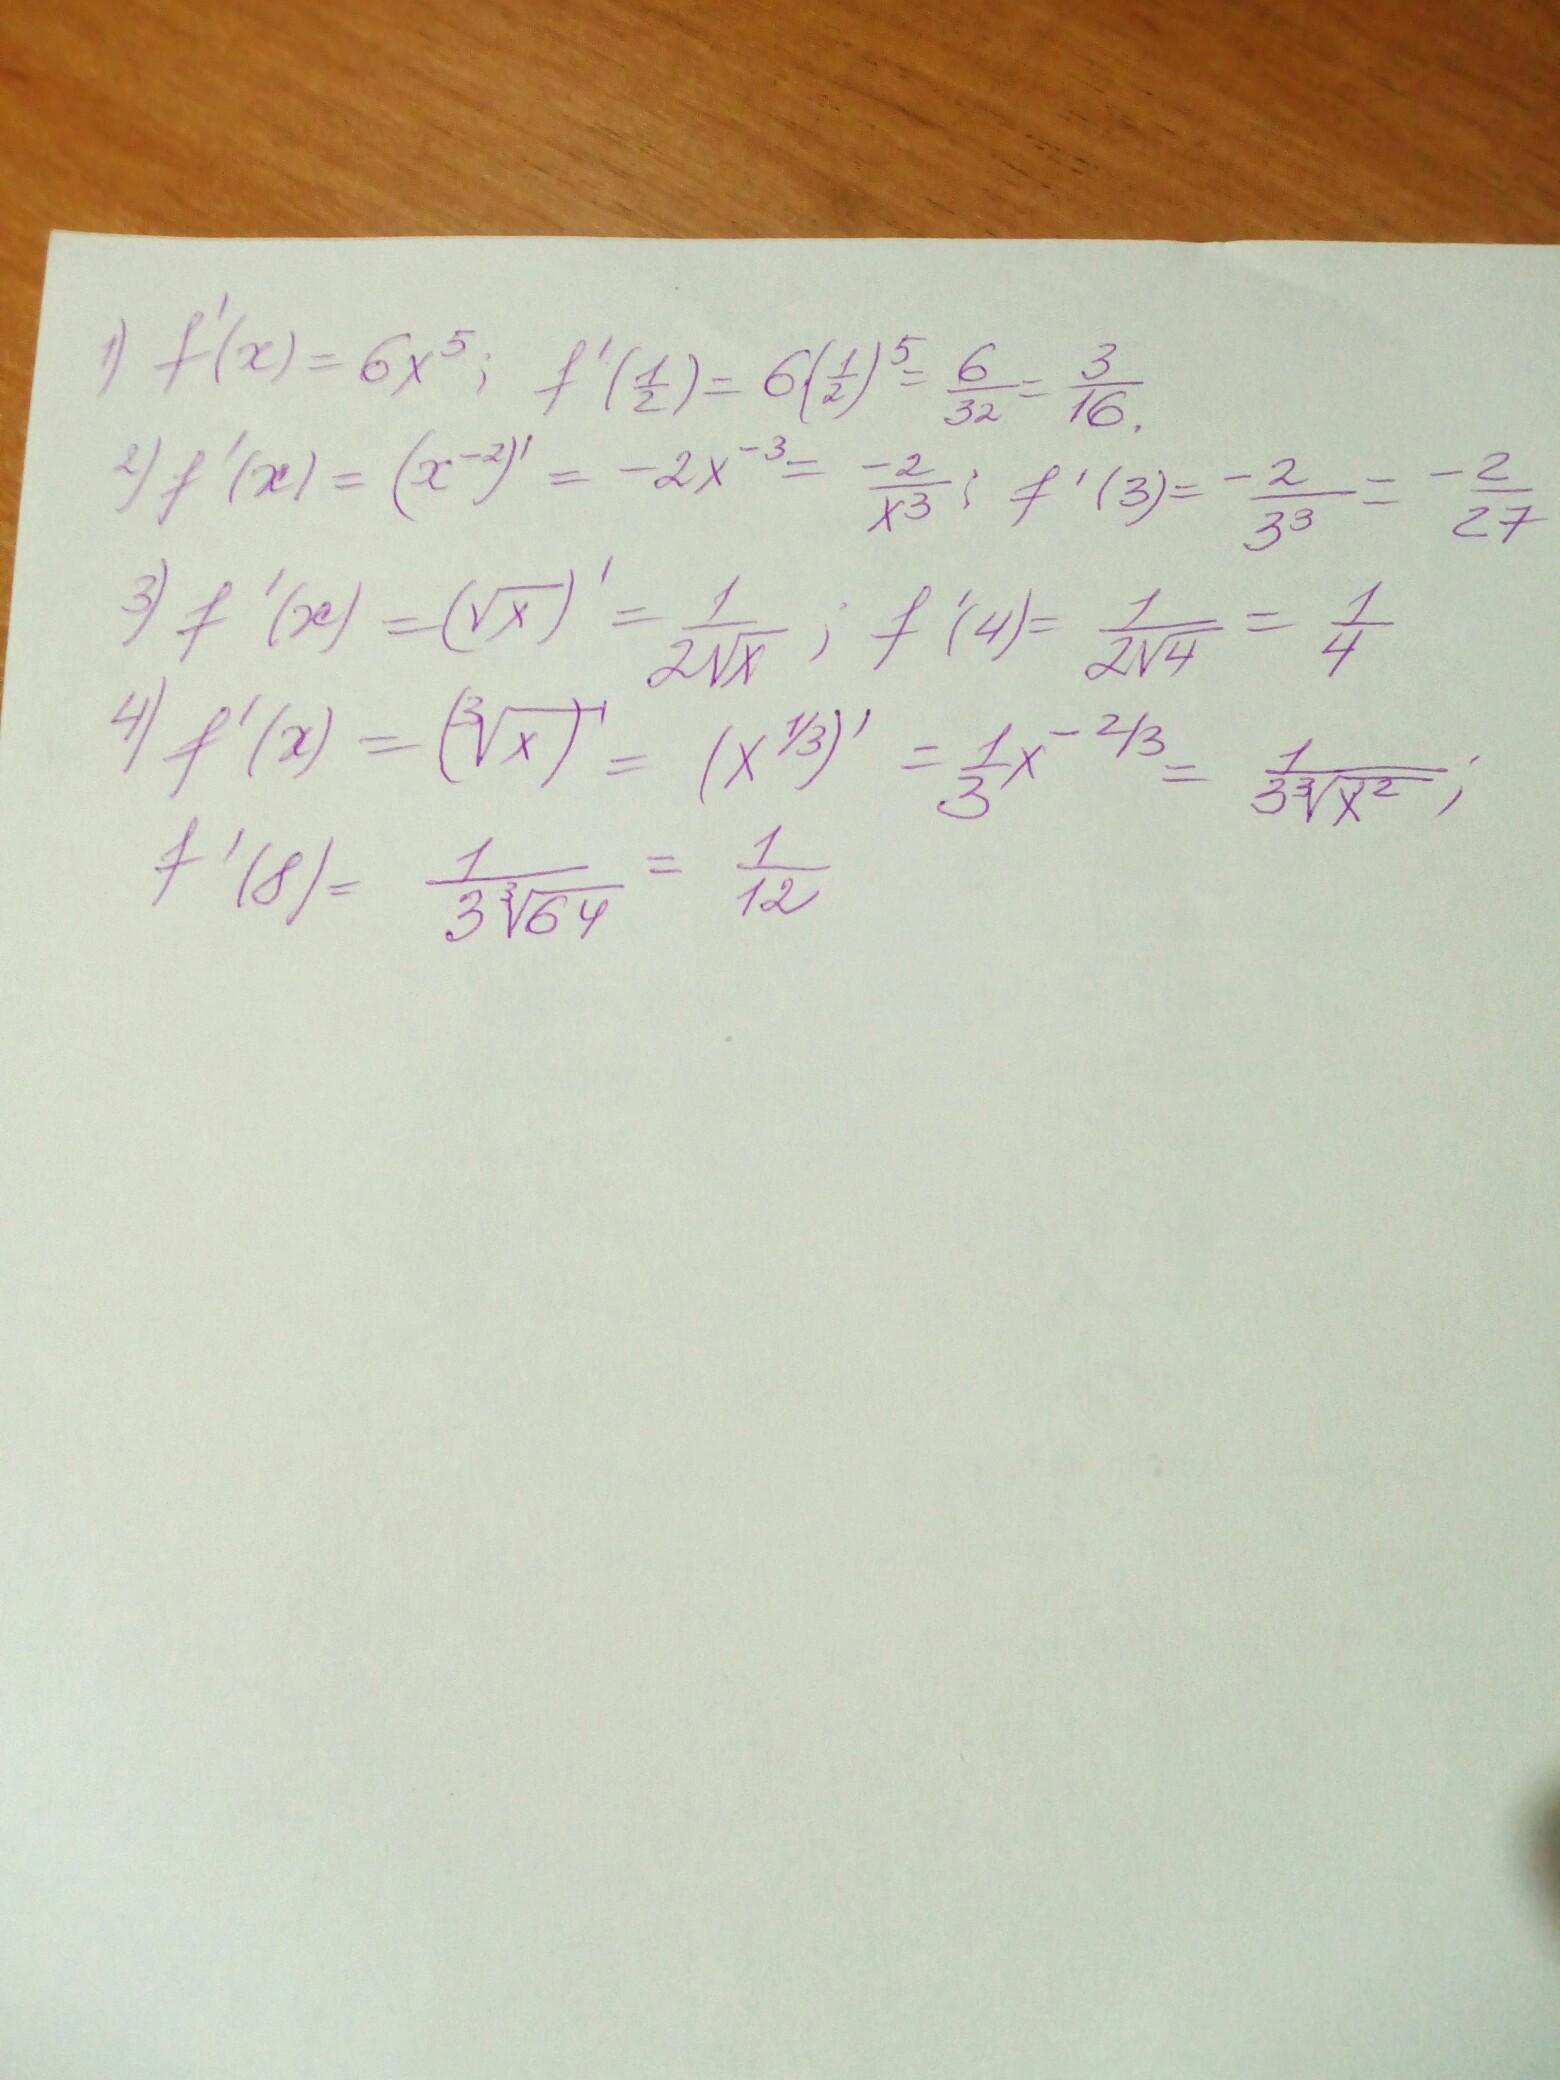 1) f'(x) = 6x⁵; f'(1/2) = 6(1/2)⁵ = 6/32 = 3/16.
2) f'(x) = (x⁻²)' = -2x⁻³ = -2/x³; f'(3) = -2/3³ = -2/27
3) f'(x) = (√x)' = 1/2√x; f'(4) = 1/2√4 = 1/4
4) f'(x) = (³√x)' = (x^1/3)' = 1/3 x^-2/3 = 1/3³√x²;
f'(8) = 1/3³√64 = 1/12